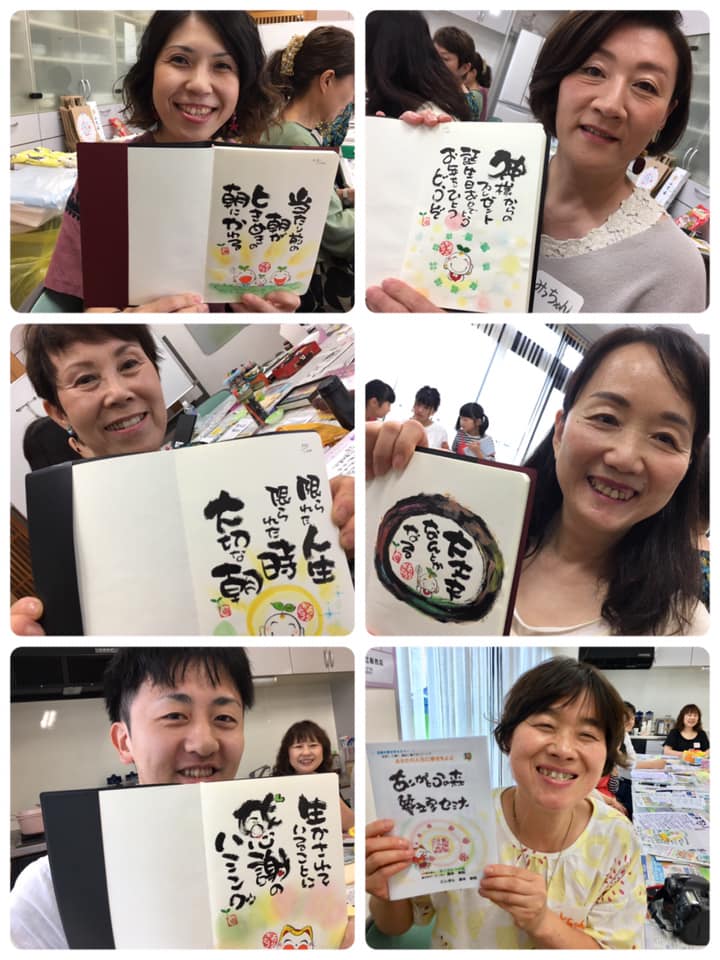 当たり前の
朝が
ときめきの
朝にかわる
神様からの
プレゼント
誕生日
お年もひとつ
どうぞ
みっちゃん
限られた人生
限られた時
大切な朝
大丈夫
なんとか
なる
生かされて
いることに
感謝の
ハミング
ありがとうの森
セミナー